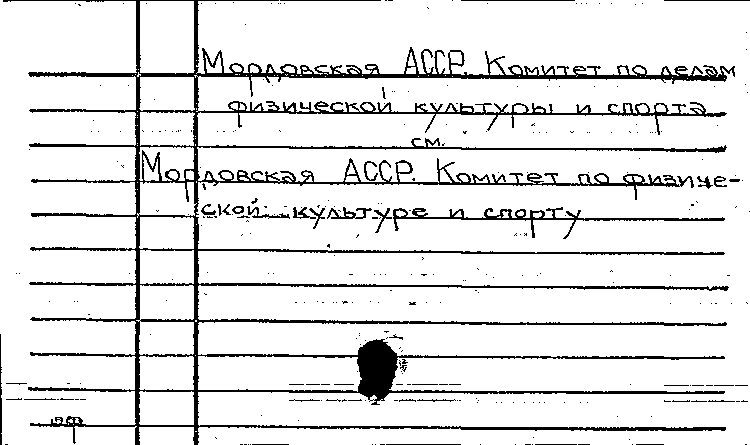 Мордовская АССР. Комитет по делам
физической культуры и спорта
см.
Мордовская АССР. Комитет по физиче-
ской культуре и спорту